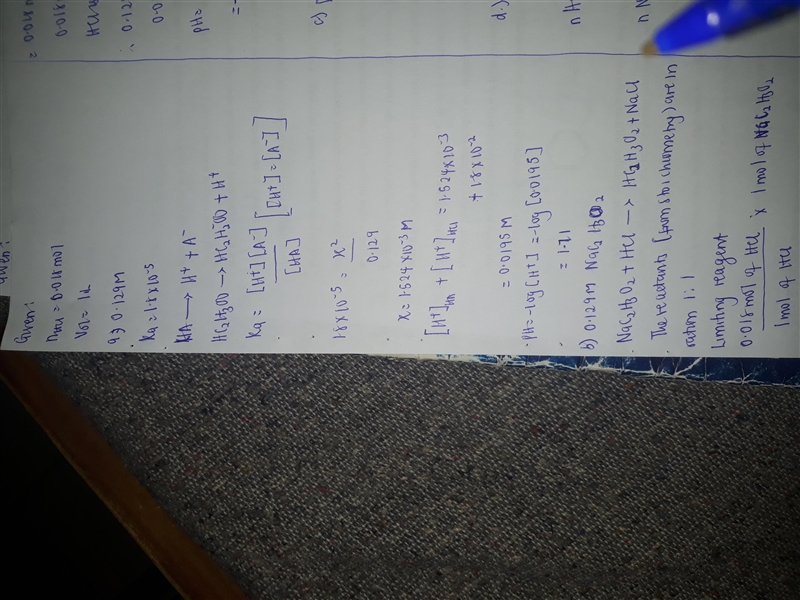 Given:
nHCl = 0.018 mol
Vol = 1L
a) 0.129M
Ka = 1.8 x 10-5
HA → H+ + A-
HC2H3O → HC2H3O + H+
Ka = [H+][A-] [[H+] = [A-]]
[HA]
1.8 x 10-5 = x2
0.129
x = 1.524 x 10-3 M
[H+]HA + [H+]HCl = 1.524 x 10-3
+ 1.8 x 10-2
= 0.0195 M
pH = -log [H+] = -log [0.0195]
= 1.71
b) 0.129M NaC2H3O2
NaC2H3O2 + HCl → HC2H3O2 + NaCl
The reactants (from stoichiometry) are in
ration 1:1
Limiting reagent
0.018 mol of HCl x 1 mol of NaC2H3O2
1 mol of HCl
= 0.018
0.018
HCl
∴ 0.12
0.0
pH =
= -
c) [
d)
n H
n N